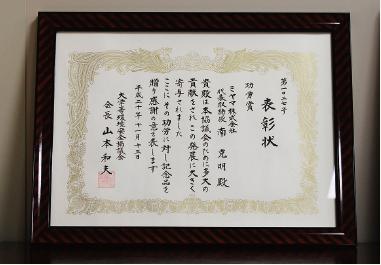 第一〇二七号
表彰状
功労賞
ミヤマ株式会社
代表取締役 南 克明 殿
貴殿は本協議会のために多大の
貢献をされ この発展に大きく
寄与されました
ここに その功労に対し記念品を
贈り感謝の意を表します
平成二十年十一月十三日
大学等環境安全協議会
会長 山本和夫